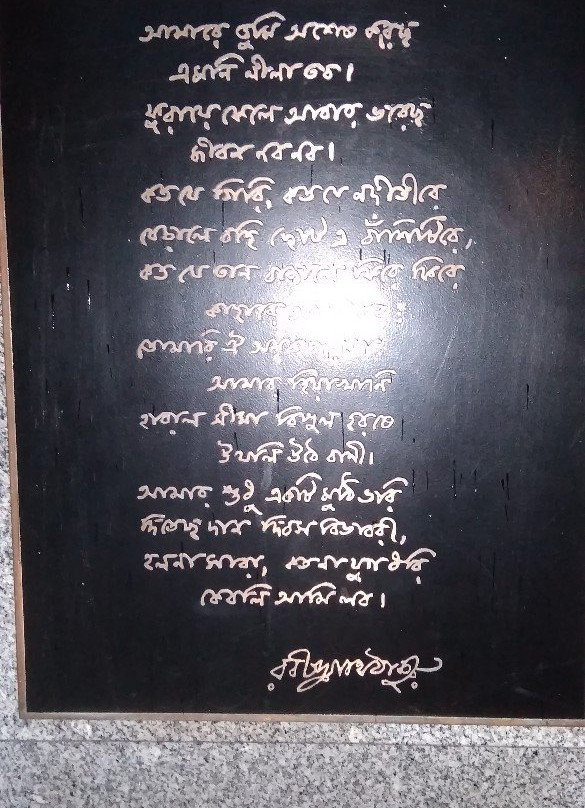 আমারে তুমি অশেষ করেছ
এমনি লীলা তব।
ফুরায়ে ফেলে আবার ভরেছ
জীবন নব নব।
কত যে গিরি, কত যে নদীতীরে
বেড়ালে বহি ছোট এ বাঁশিটিরে,
কত যে তান বাজালে ফিরে ফিরে
কাহারে
তোমারি ঐ
আমার হিয়াখানি
হারাল সীমা বিপুল হরষে
উথলি উঠে বাণী।
আমার শুধু একটি মুঠি ভরি
দিতেছ দান দিবস বিভাবরী,
হলনা সারা, কত না যুগ ধরি
কেবলি আমি লব।
রবীন্দ্রনাথ ঠাকুর